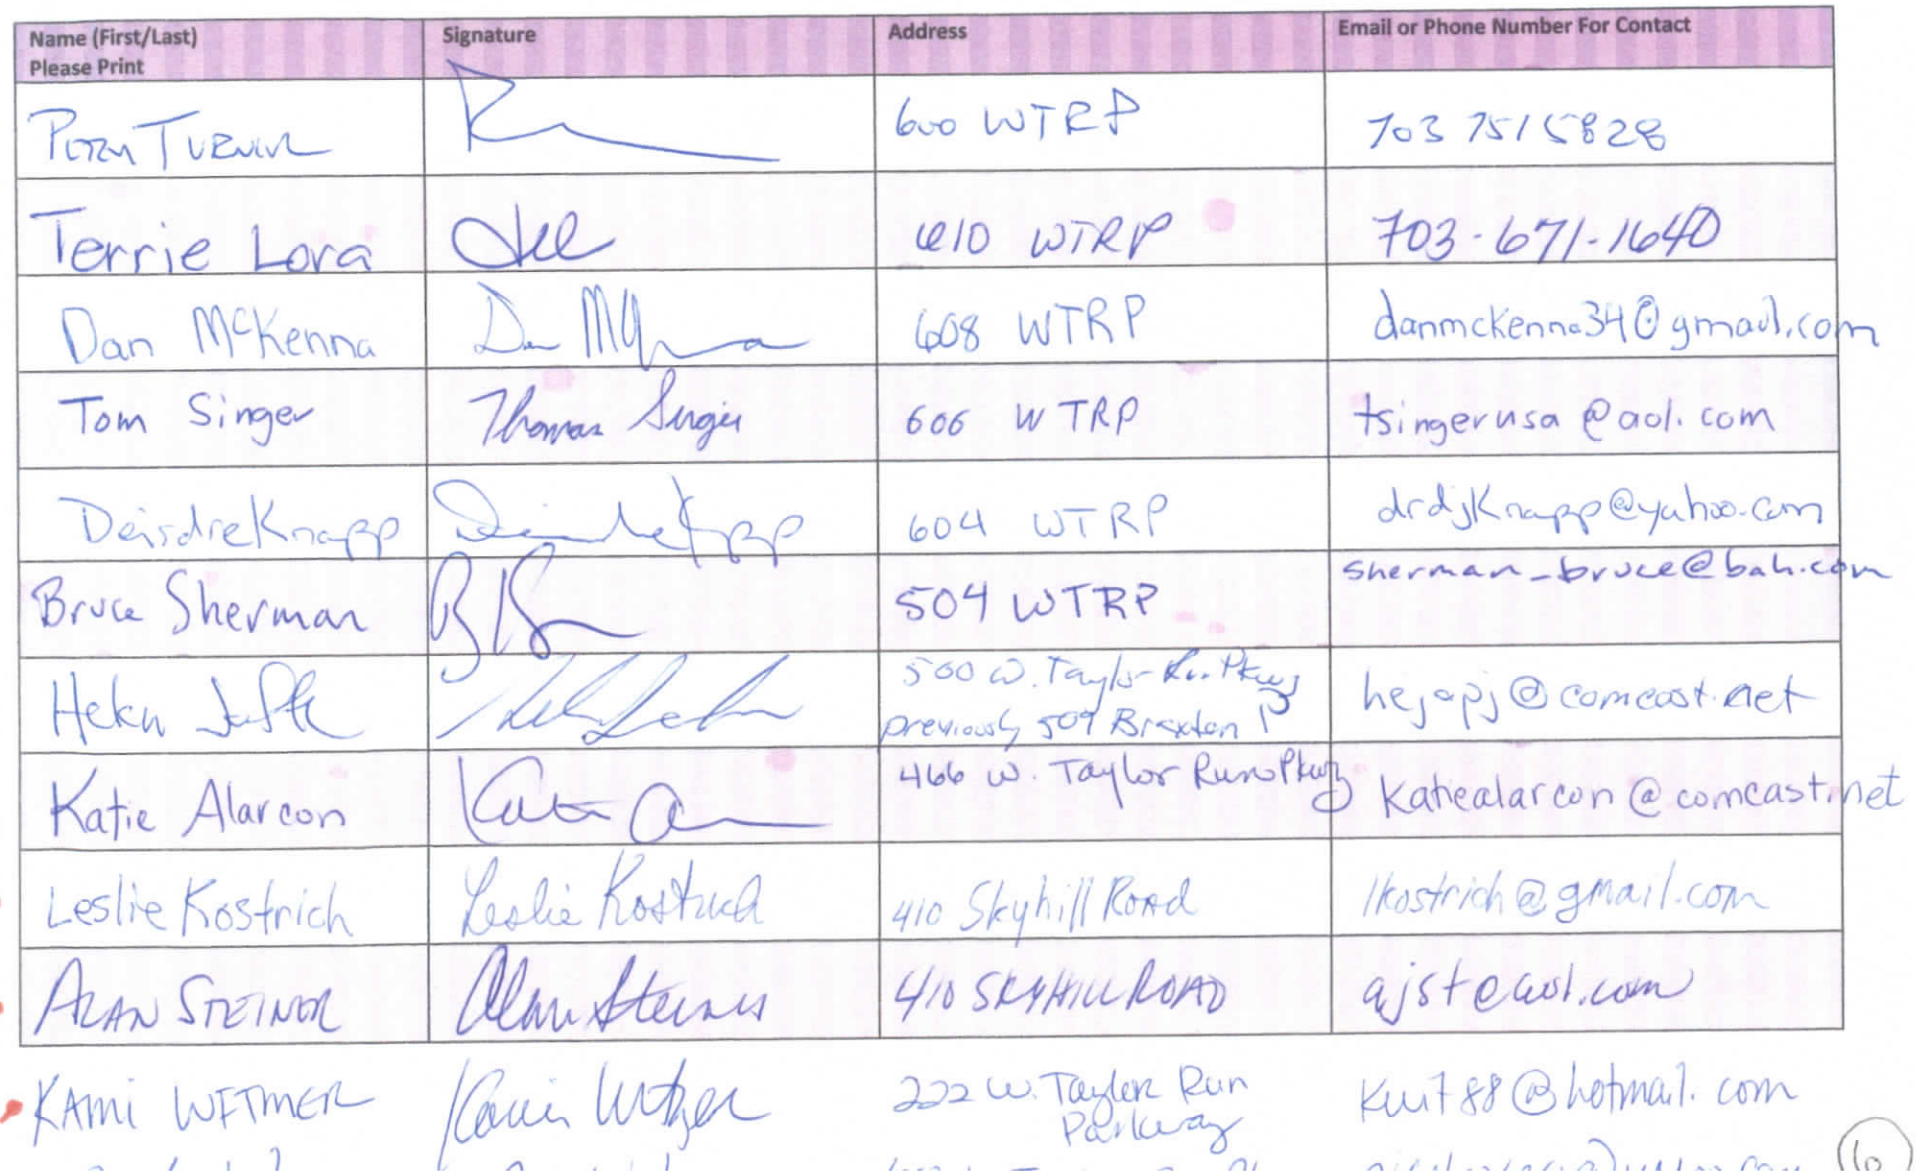 Name (First/Last) Signature Address Email or Phone Number For Contact
Please Print
Turner 600 WTRP 703 751 5828
Terrie Lora 610 WTRP 703-671-1640
Dan McKenna Dan 608 WTRP danmckenna34@gmail.com
Tom Singer Thomas Singer 606 WTRP tsingerusa@aol.com
Deirdre Knapp Deirdre Knapp 604 WTRP drdjknapp@yahoo.com
Bruce Sherman 504 WTRP sherman_bruce@bah.com
500 W. Taylor Run Pkwy hejapj@comcast.net
previously 509 Braxton Pl
Katie Alarcon 466 W. Taylor Run Pkwy katiealarcon@comcast.net
Leslie Kostrich Leslie Kostrich 410 Skyhill Road lkostrich@gmail.com
ALAN STEINER Alan Steiner 410 SKYHILL ROAD ajst@aol.com
KAMI 222 W. Taylor Run @hotmail.com
Parkway